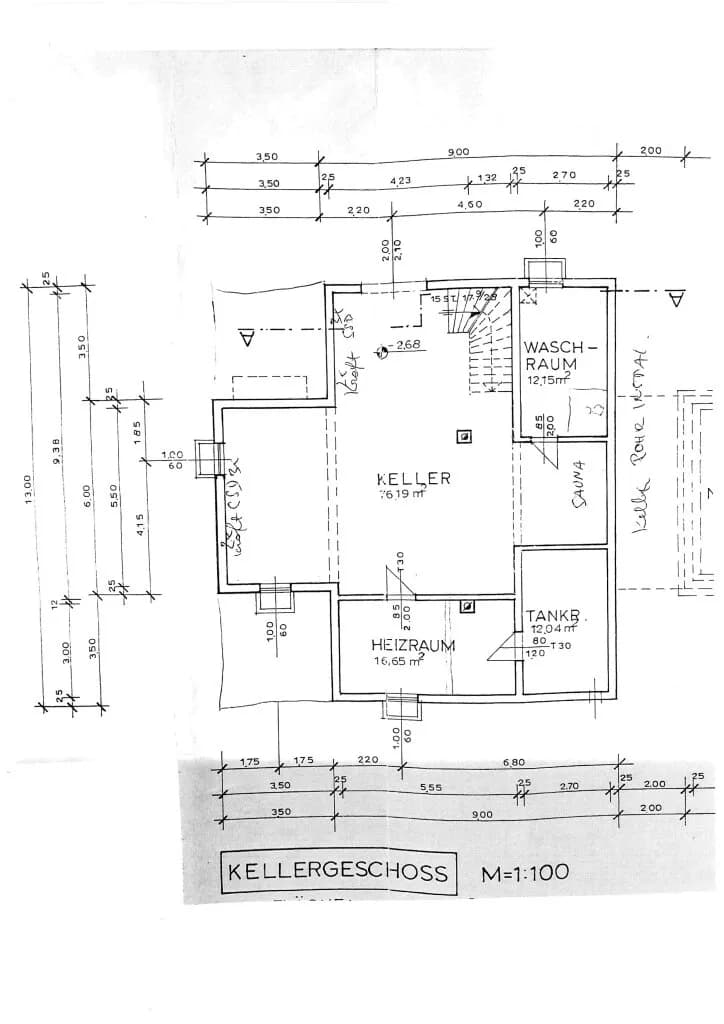 3,50
9,00
2,00
3,50
25
4,23
1,32
25
2,70
25
3,50
2,20
4,60
2,20
2,00
2,10
1,00
60
25
3,50
25
13,00
9,38
6,00
5,50
1,85
4,15
25
12
3,00
3,50
25
15 ST. 17,9/28
A
A
- 2,68
WASCH-
RAUM
12,15m²
85
2,00
1,00
60
KELLER
76,19 m²
SAUNA
Keller
T30
85
2,00
1,00
60
HEIZRAUM
16,65 m²
TANKR.
12,04 m²
80
120
T30
1,00
60
1,75
1,75
2,20
6,80
3,50
25
5,55
25
2,70
25
2,00
25
3,50
9,00
2,00
KELLERGESCHOSS
M=1:100